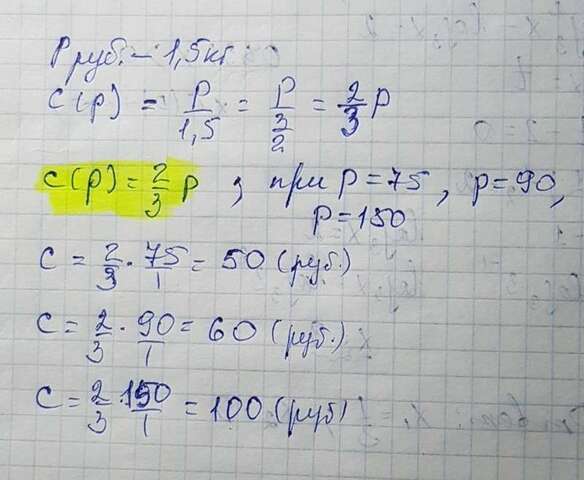 P руб. – 1,5кг
C(p) = P/1,5 = P/(3/2) = 2/3 P
C(p) = 2/3 P ; при P = 75, p = 90,
P = 150
C = 2/3 · 75/1 = 50 (руб.)
C = 2/3 · 90/1 = 60 (руб.)
C = 2/3 · 150/1 = 100 (руб)